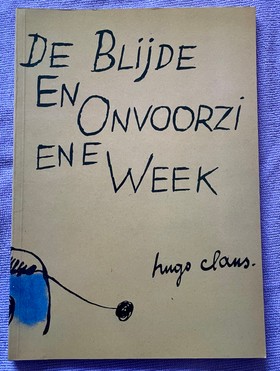 DE BLIJDE
EN
ONVOORZI
ENE
WEEK
hugo claus.